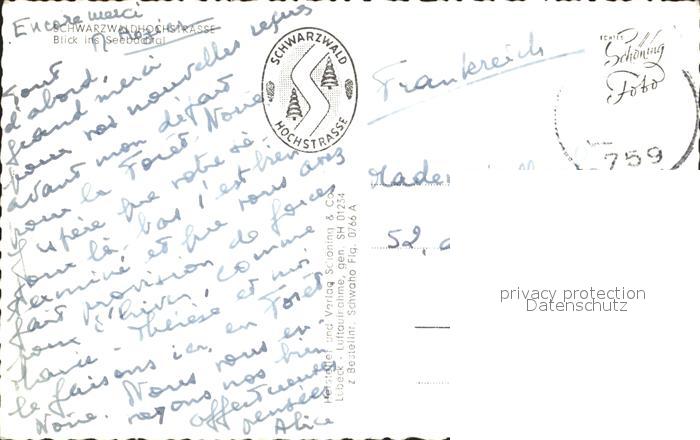 Encore merci
SCHWARZWALDHOCHSTRASSE
Blick ins Seebachtal
Tout
d'abord,
grand merci
pour vos nouvelles reçues
avant mon départ
pour la Forêt Noire
J'espère que votre séjour
là-bas s'est bien
terminé et que vous avez
fait provision de forces
pour l'hiver, comme
Marie-Thérèse et moi
le faisons ici, en Forêt
Noire. Nous vous en-
voyons nos bien
affectueuses
pensées
Alice
SCHWARZWALD
HOCHSTRASSE
Hersteller und Verlag Schöning & Co
Lübeck - Luftaufnahme, gen. SH 01234
z Bestellnr. Schwaho Flg. 0766 A
Frankreich
ECHTES
Schöning
Foto
759
Made
52,
privacy protection
Datenschutz